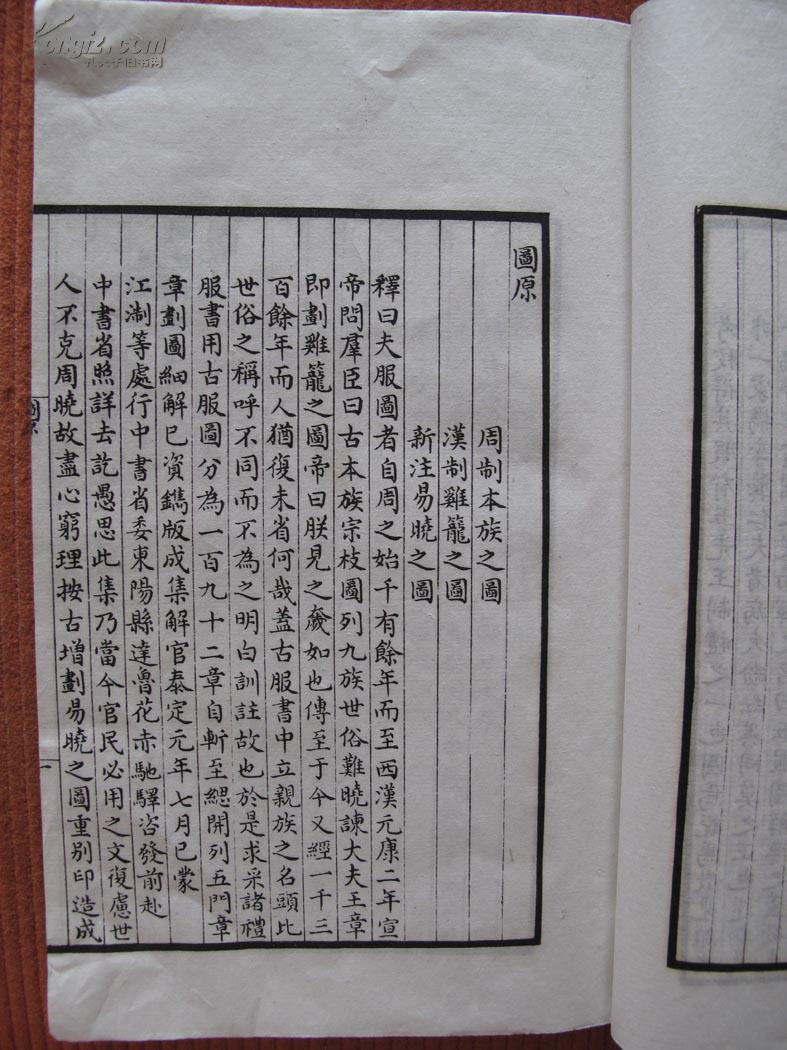 圖原
周制本族之圖
漢制雞籠之圖
新注易曉之圖
釋曰夫服圖者自周之始千有餘年而至西漢元康二年宣
帝問羣臣曰古本族宗枝圖列九族世俗難曉諫大夫王章
即劃雞籠之圖帝曰朕見之癈如也傳至于今又經一千三
百餘年而人猶復未省何哉蓋古服書中立親族之名頭比
世俗之稱呼不同而不為之明白訓註故也於是求采諸禮
服書用古服圖分為一百九十二章自斬至緦開列五門章
章劃圖細解已資鐫版成集解官泰定元年七月已蒙
江淛等處行中書省委東陽縣達魯花赤馳驛咨發前赴
中書省照詳去訖愚思此集乃當今官民必用之文復慮世
人不克周曉故盡心窮理按古增劃易曉之圖重別印造成
圖原
一
Kongfz.com
孔夫子旧书网